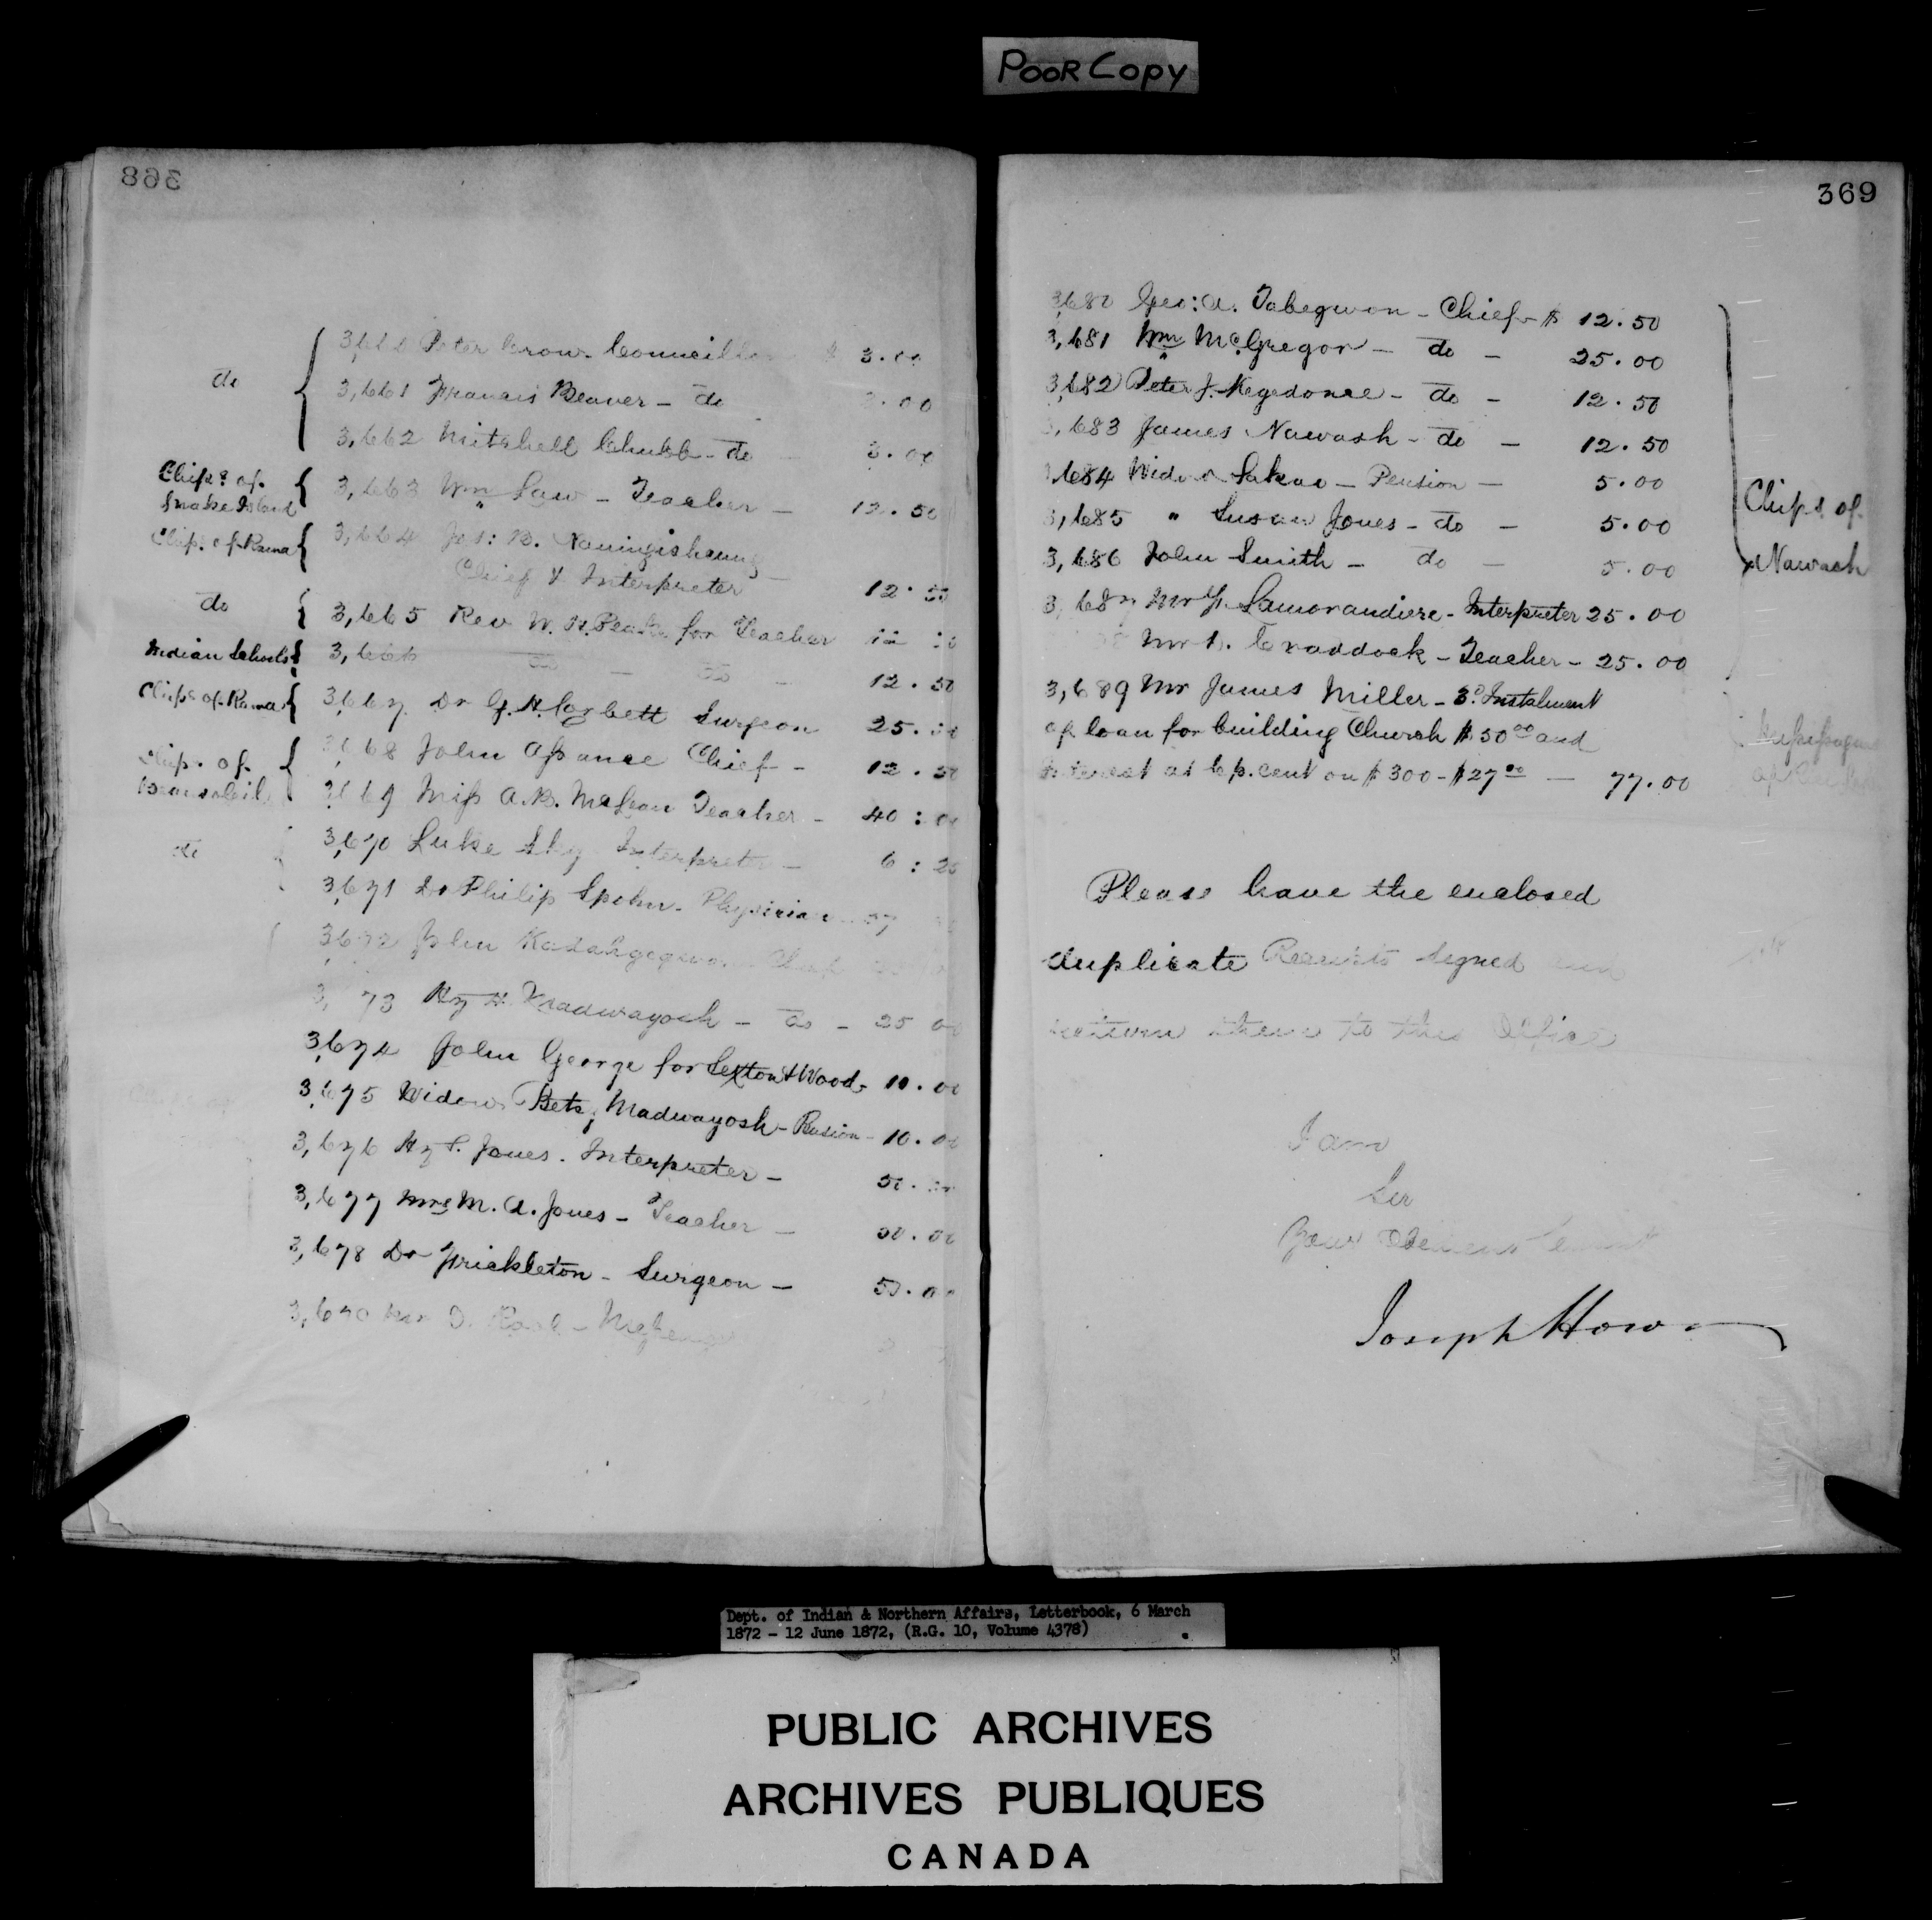 POOR COPY
368
do
Peter Crow - Councillor $ 3.00
3,661 Francis Beaver - do .00
3,662 Mitchell Chubb - do - 3.00
Chips of
Snake Island
3,663 Wm Law - Teacher - 12.50
Chips of Rama
3,664 Jos: B. Naningishkung
Chief & Interpreter - 12.50
do
3,665 Rev W. H. for Teacher
Indian Schools
3,666 do - do - 12.50
Chips of Rama
3,667 Dr G. H. Corbett Surgeon 25.00
Chips of
Beausoleil
3,668 John Assance Chief - 12.50
3,669 Miss A. B. McLean Teacher - 40:00
do
3,670 Luke Sky Interpreter - 6:25
3,671 Dr Philip Spohn - Physician
3,672 John
3,673 Hy H. Madwayosh - do - 25 00
3,674 John George for Sexton & Wood - 10.00
3,675 Widow Betsy Madwayosh - Pension - 10.00
3,676 Hy P. Jones - Interpreter - 50.
3,677 Mrs M. A. Jones - Teacher - 50.00
3,678 Dr Frickleton - Surgeon - 50.00
369
3,680 Geo: A. Tabegwon - Chief - $ 12.50
3,681 Wm McGregor - do - 25.00
3,682 Peter J. Kegedonce - do - 12.50
3,683 James Nawash - do - 12.50
3,684 Widow Sakao - Pension - 5.00
3,685 " Susan Jones - do - 5.00
3,686 John Smith - do - 5.00
Chips of
Nawash
3,687 Mr F. Lamorandiere - Interpreter 25.00
Mr I. Craddock - Teacher - 25.00
3,689 Mr James Miller - 3d Instalment
of loan for building Church $50 00 and
Interest at 6 p. cent on $300 - $27 00 - 77.00
Please have the enclosed
duplicate Receipts signed and
return them to this Office
I am
Sir
Your Obedient Servant
Joseph Howe
Dept. of Indian & Northern Affairs, Letterbook, 6 March
1872 - 12 June 1872, (R.G. 10, Volume 4378)
PUBLIC ARCHIVES
ARCHIVES PUBLIQUES
CANADA